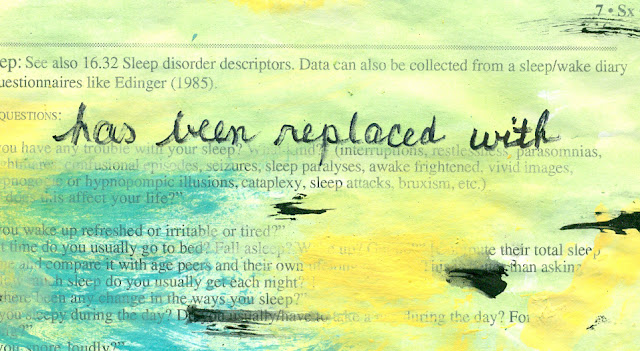 7 • Sx
ep: See also 16.32 Sleep disorder descriptors. Data can also be collected from a sleep/wake diary
uestionnaires like Edinger (1985).
QUESTIONS:
has been replaced with
ou have any trouble with your sleep? kind? (interruptions, restlessness, parasomnias,
ghtmares, confusional episodes, seizures, sleep paralyses, awake frightened, vivid images,
or hypnopompic illusions, cataplexy, sleep attacks, bruxism, etc.)
does this affect your life?”
you wake up refreshed or irritable or tired?”
t time do you usually go to bed? Fall asleep? up? their total sleep
and compare it with age peers and their own than asking
much sleep do you usually get each night?
here been any change in the ways you sleep?”
you sleepy during the day? Do you usually/have to take a during the day? For
you snore loudly?”